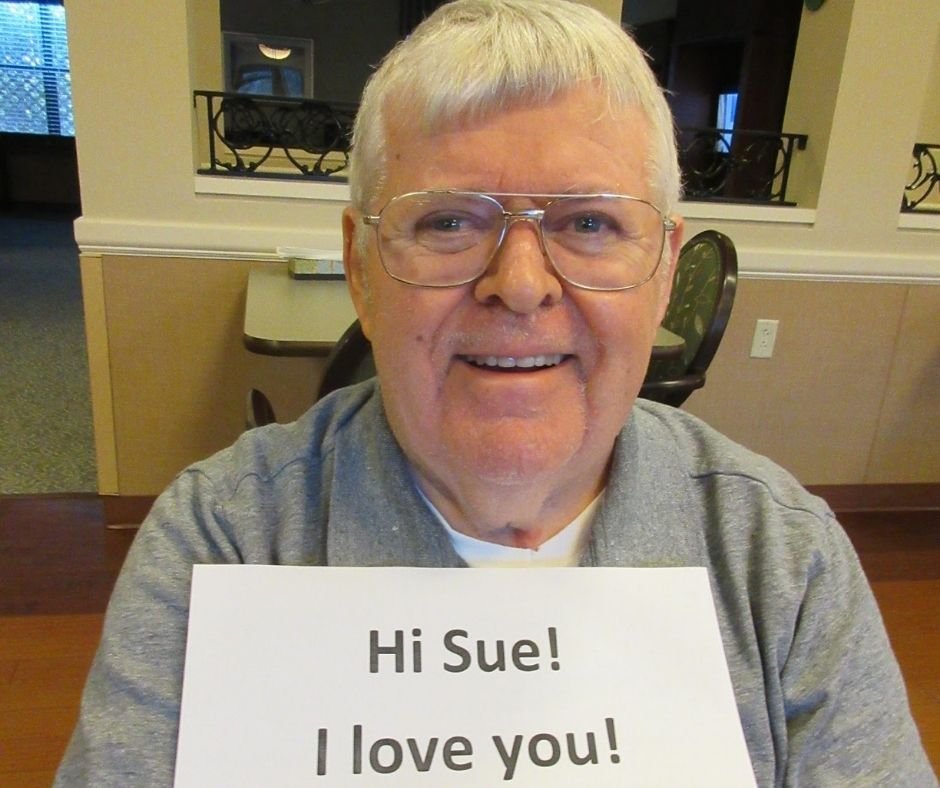 Hi Sue!
I love you!